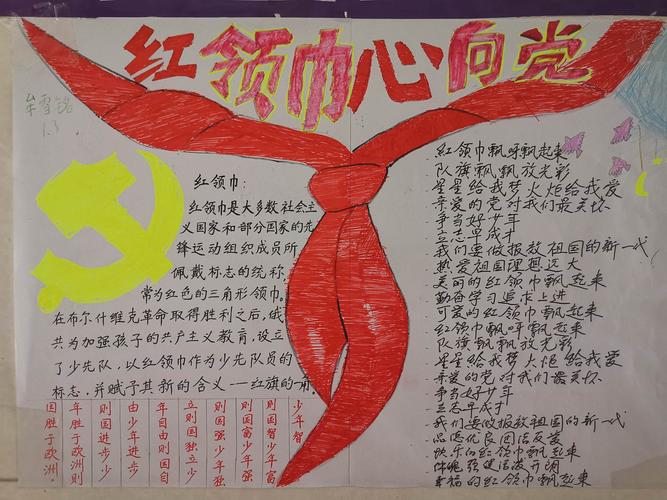 红领巾心向党
牟雪铭
1.3
红领巾：
红领巾是大多数社会主
义国家和部分国家的先
锋运动组织成员所
佩戴标志的统称,
常为红色的三角形领巾。
在布尔什维克革命取得胜利之后,俄
共为加强孩子的共产主义教育,设立
了少先队,以红领巾作为少先队员的
标志,并赋予其新的含义一红旗的一角。
少年智
则国智少年富
则国富少年强
则国强少年独
立则国独立少
年自由则国自
由少年进步
则国进步少
年胜于欧洲则
国胜于欧洲。
红领巾飘呀飘起来
队旗飘飘飘放光彩
星星给我梦火炬给我爱
亲爱的党对我们最关怀
争当好少年
立志早成才
我们要做报效祖国的新一代
热爱祖国理想远大
美丽的红领巾飘起来
勤奋学习追求上进
可爱的红领巾飘起来
红领巾飘呀飘起来
队旗飘飘飘放光彩
星星给我梦火炬给我爱
亲爱的党对我们最关怀
争当好少年
立志早成才
我们要做报效祖国的新一代
品德优良团结友爱
快乐的红领巾飘起来
体魄强健活泼开朗
幸福的红领巾飘起来